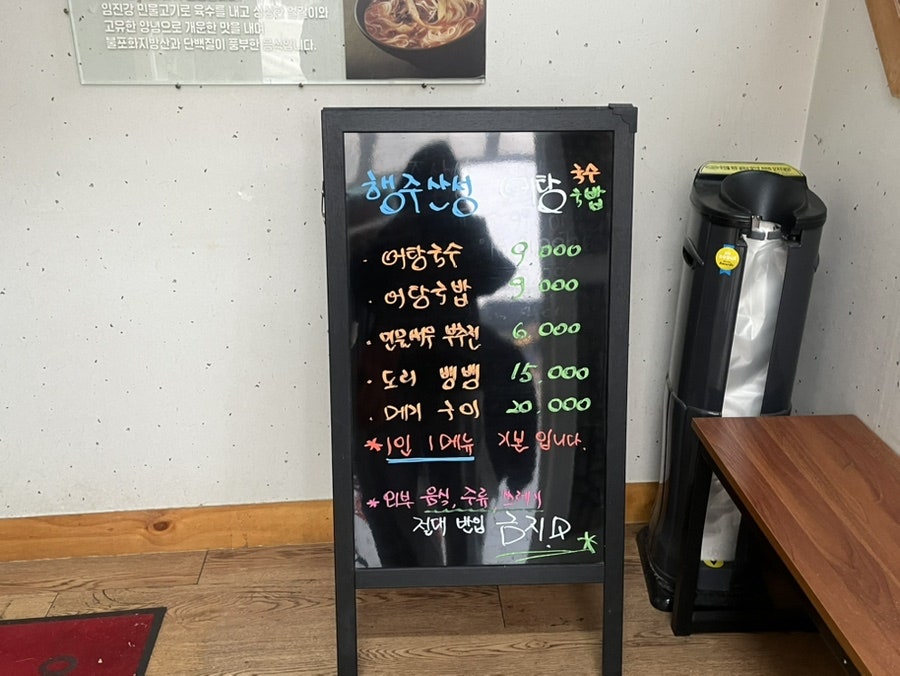 임진강 민물고기로 육수를 내고
고유한 양념으로 개운한 맛을 내며
불포화지방산과 단백질이 풍부한 음식입니다.
행주산성 어탕 국수
국밥
· 어탕국수 9.000
· 어탕국밥 9.000
· 민물새우 부추전 6.000
· 도리 뱅뱅 15.000
· 메기 구이 20.000
*1인 1메뉴 기본 입니다.
*외부 음식, 주류, 쓰레기
절대 반입 금지